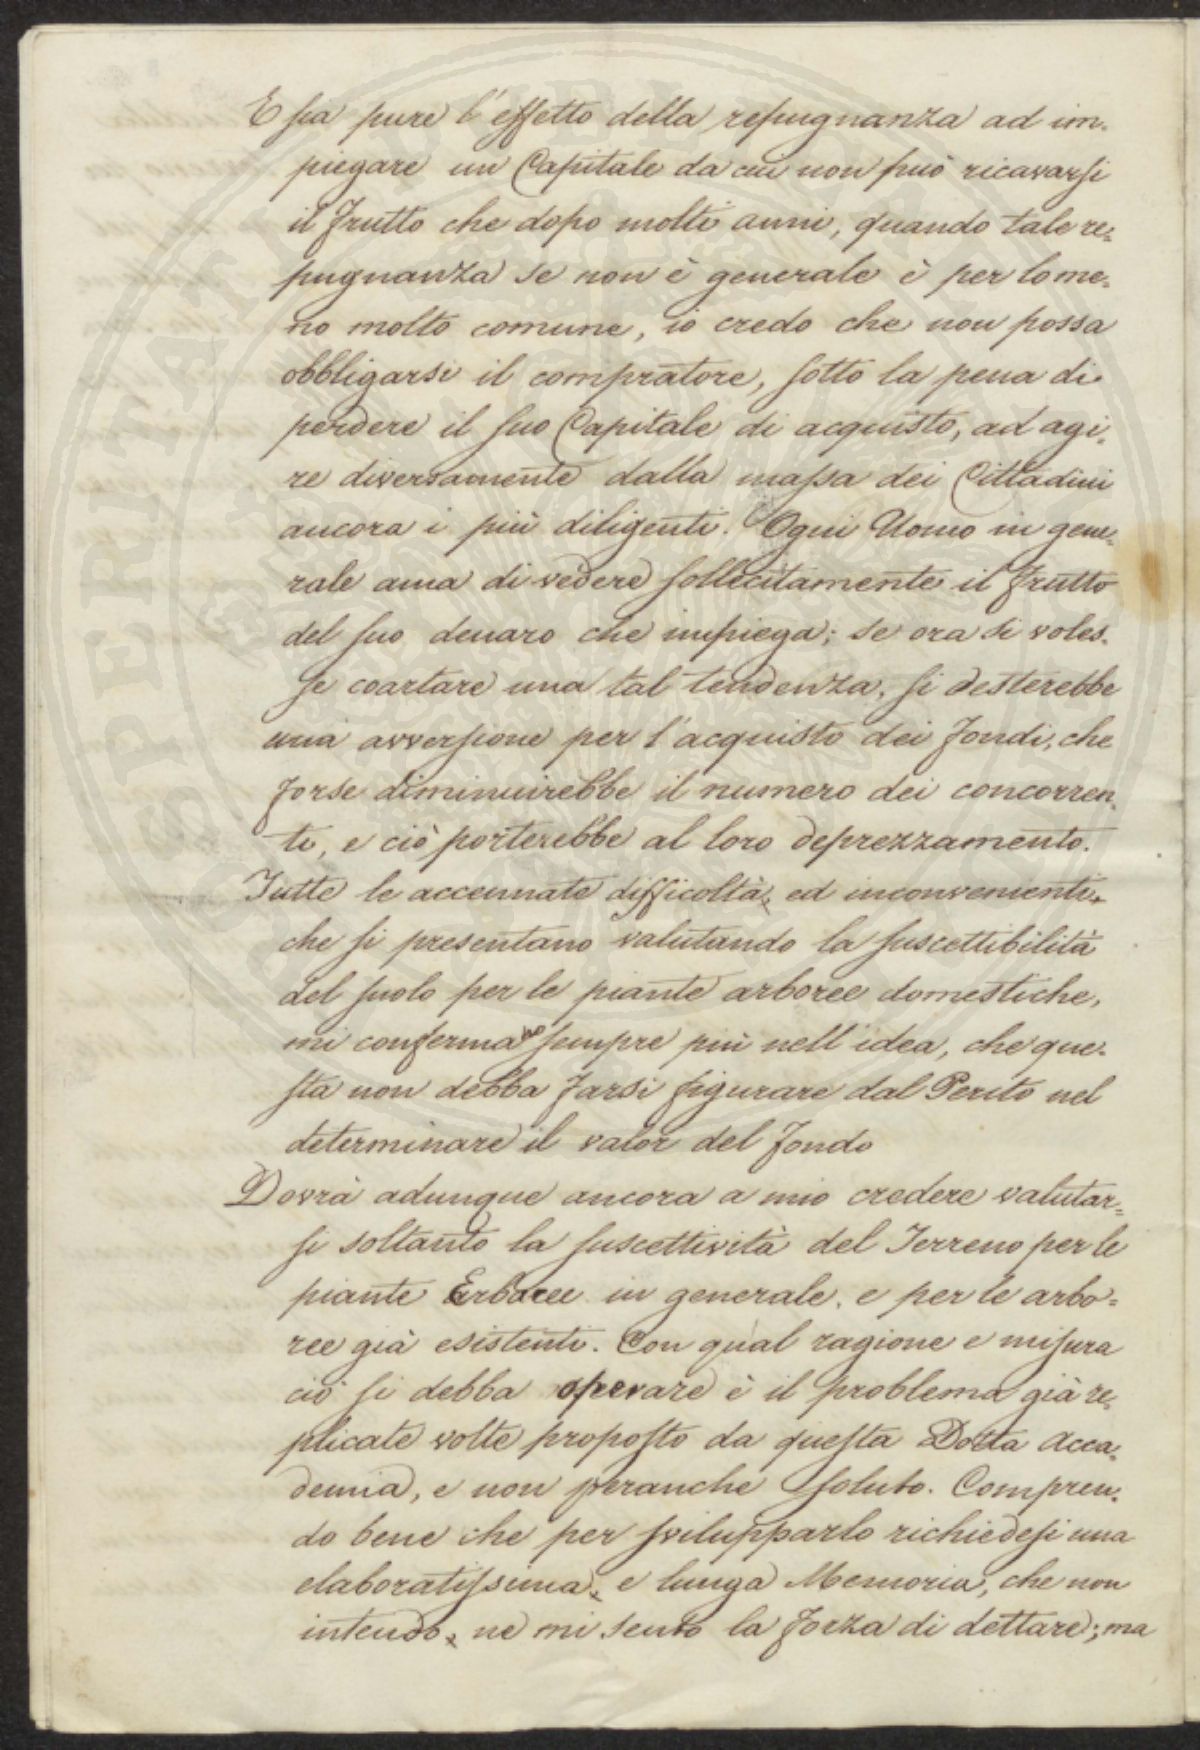 E sia pure l'effetto della repugnanza ad im-
piegare un Capitale da cui non può ricavarsi
il frutto che dopo molti anni, quando tale re-
pugnanza se non è generale è per lo me-
no molto comune, io credo che non possa
obbligarsi il compratore, sotto la pena di
perdere il suo Capitale di acquisto, ad agi-
re diversamente dalla massa dei Cittadini
ancora i più diligenti. Ogni Uomo in gene-
rale ama di vedere sollecitamente il frutto
del suo denaro che impiega; se ora si voles-
se coartare una tal tendenza, si desterebbe
una avversione per l'acquisto dei fondi, che
forse diminuirebbe il numero dei concorren-
ti, e ciò porterebbe al loro deprezzamento.
Tutte le accennate difficoltà, ed inconvenienti,
che si presentano valutando la suscettibilità
del suolo per le piante arboree domestiche,
mi confermano sempre più nell'idea, che que-
sta non debba farsi figurare dal Perito nel
determinare il valor del fondo
Dovrà adunque ancora a mio credere valutar=
si soltanto la suscettività del Terreno per le
piante Erbacee in generale, e per le arbo=
ree già esistenti. Con qual ragione e misura
ciò si debba operare è il problema già re-
plicate volte proposto da questa Dotta Acca-
demia, e non peranche soluto. Compren-
do bene che per svilupparlo richiedesi una
elaboratissima, e lunga Memoria, che non
intendo, ne mi sento la forza di dettare; ma
SPERITATI VELOC